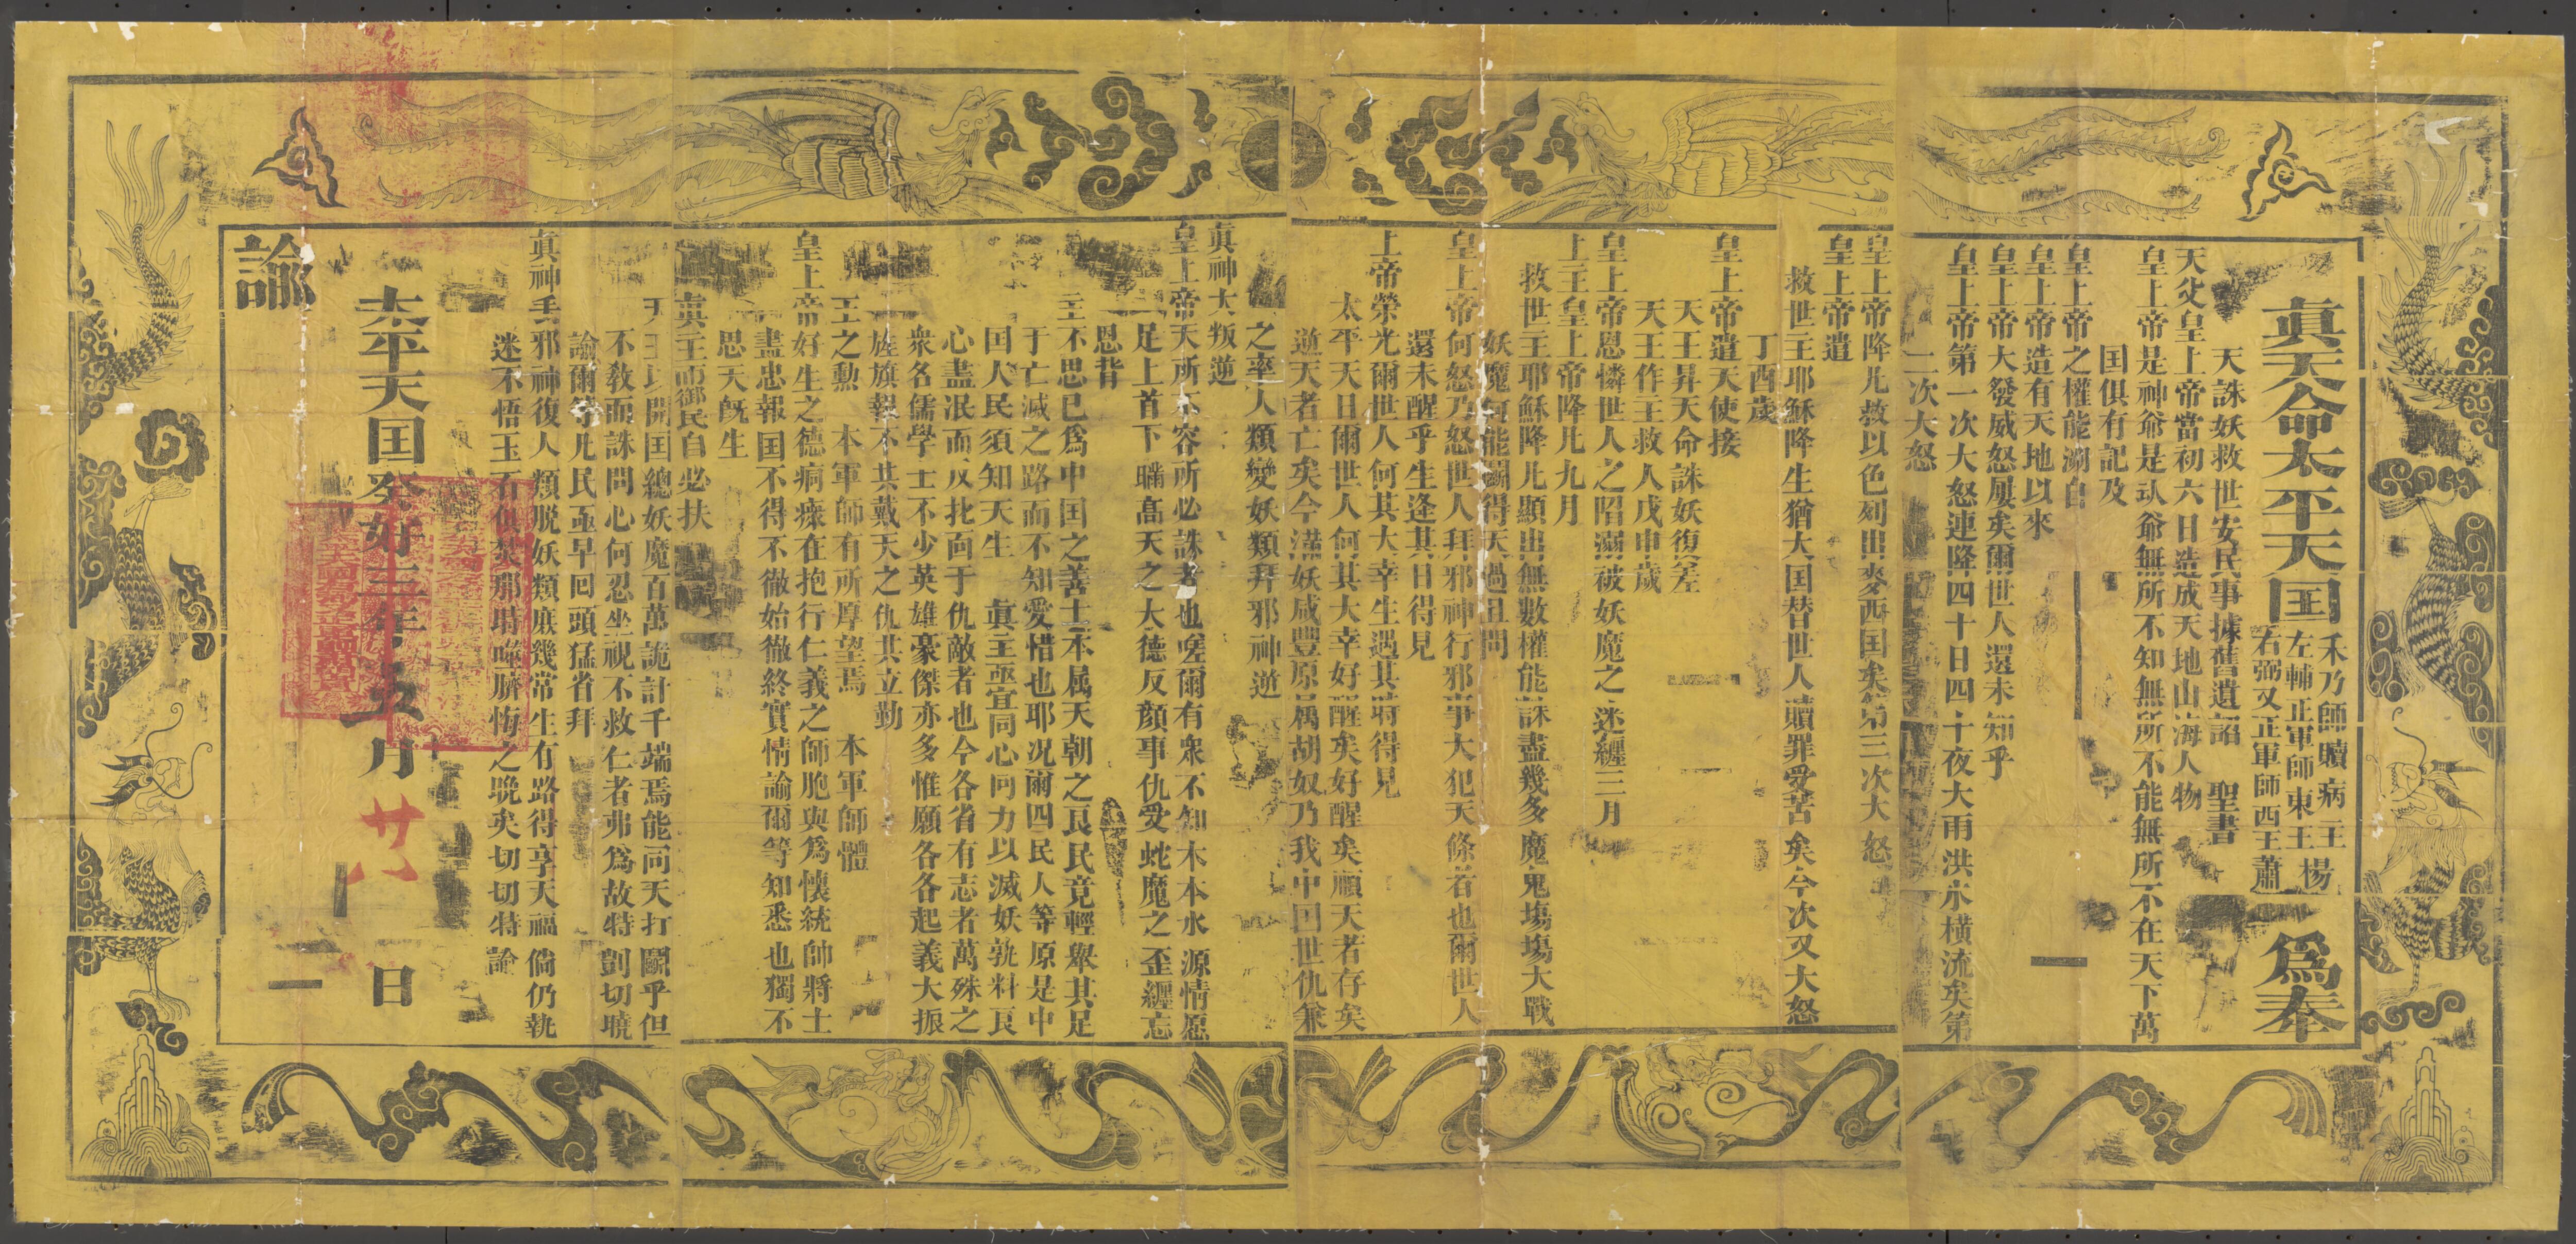 真天命太平天囯
禾乃師贖病主
左輔正軍師東王楊
右弼又正軍師西王蕭
為奉
天誅妖救世安民事據舊遺詔聖書
天父皇上帝當初六日造成天地山海人物
皇上帝是神爺是魂爺無所不知無所不能無所不在天下萬
囯俱有記及
皇上帝之權能溯自
皇上帝造有天地以來
皇上帝大發威怒屢矣爾世人還未知乎
皇上帝第一次大怒連降四十日四十夜大雨洪水橫流矣第
二次大怒
皇上帝降凡救以色列出麥西囯矣第三次大怒
皇上帝遣
救世主耶穌降生猶大囯替世人贖罪受苦矣今次又大怒
丁酉歲
皇上帝遣天使接
天王昇天命誅妖復差
天王作主救人戊申歲
皇上帝恩憐世人之陷溺被妖魔之迷纏三月
上主皇上帝降凡九月
救世主耶穌降凡顯出無數權能誅盡幾多魔鬼塲塲大戰
妖魔何能鬬得天過且問
皇上帝何怒乃怒世人拜邪神行邪事大犯天條者也爾世人
還未醒乎生逢其日得見
上帝榮光爾世人何其大幸生遇其時得見
太平天日爾世人何其大幸好醒矣好醒矣順天者存矣
逆天者亡矣今滿妖咸豐原属胡奴乃我中囯世仇兼
之率人類變妖類拜邪神逆
真神大叛逆
皇上帝天所不容所必誅者也嗟爾有衆不知木本水源情愿
足上首下瞞高天之大德反顏事仇受蛇魔之歪纏忘
恩背
主不思已為中囯之善士本属天朝之良民竟輕舉其足
于亡滅之路而不知愛惜也耶况爾四民人等原是中
囯人民須知天生真主亟宜同心同力以滅妖孰料良
心盡泯而反北向于仇敵者也今各省有志者萬殊之
衆名儒學士不少英雄豪傑亦多惟願各各起義大振
旌旗報不共戴天之仇共立勤
王之勳本軍師有所厚望焉本軍師體
皇上帝好生之德痌瘝在抱行仁義之師胞與為懷統帥將士
盡忠報囯不得不徹始徹終實情諭爾等知悉也獨不
思天旣生
真主而御民自必扶
天王以開囯總妖魔百萬詭計千端焉能同天打鬬乎但
不教而誅問心何忍坐視不救仁者弗為故特剴切曉
諭爾等凡民亟早囘頭猛省拜
真神丟邪神復人類脱妖類庶幾常生有路得享天福倘仍執
迷不悟玉石俱焚那時噬臍悔之晩矣切切特諭
太平天囯癸好三年五月廿八日
諭